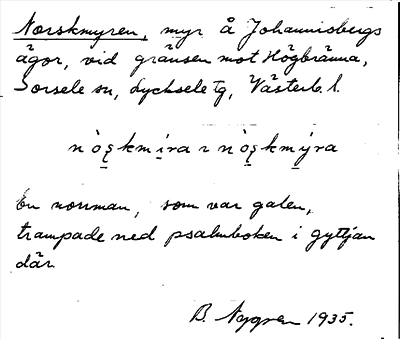 Norskmyren, myr å Johannisbergs
ägor, vid gränsen mot Högbränna,
Sorsele sn, Lycksele tg, Västerb. l.
En norrman, som var galen,
trampade ned psalmboken i gyttjan
där.
B. Nygren 1935.